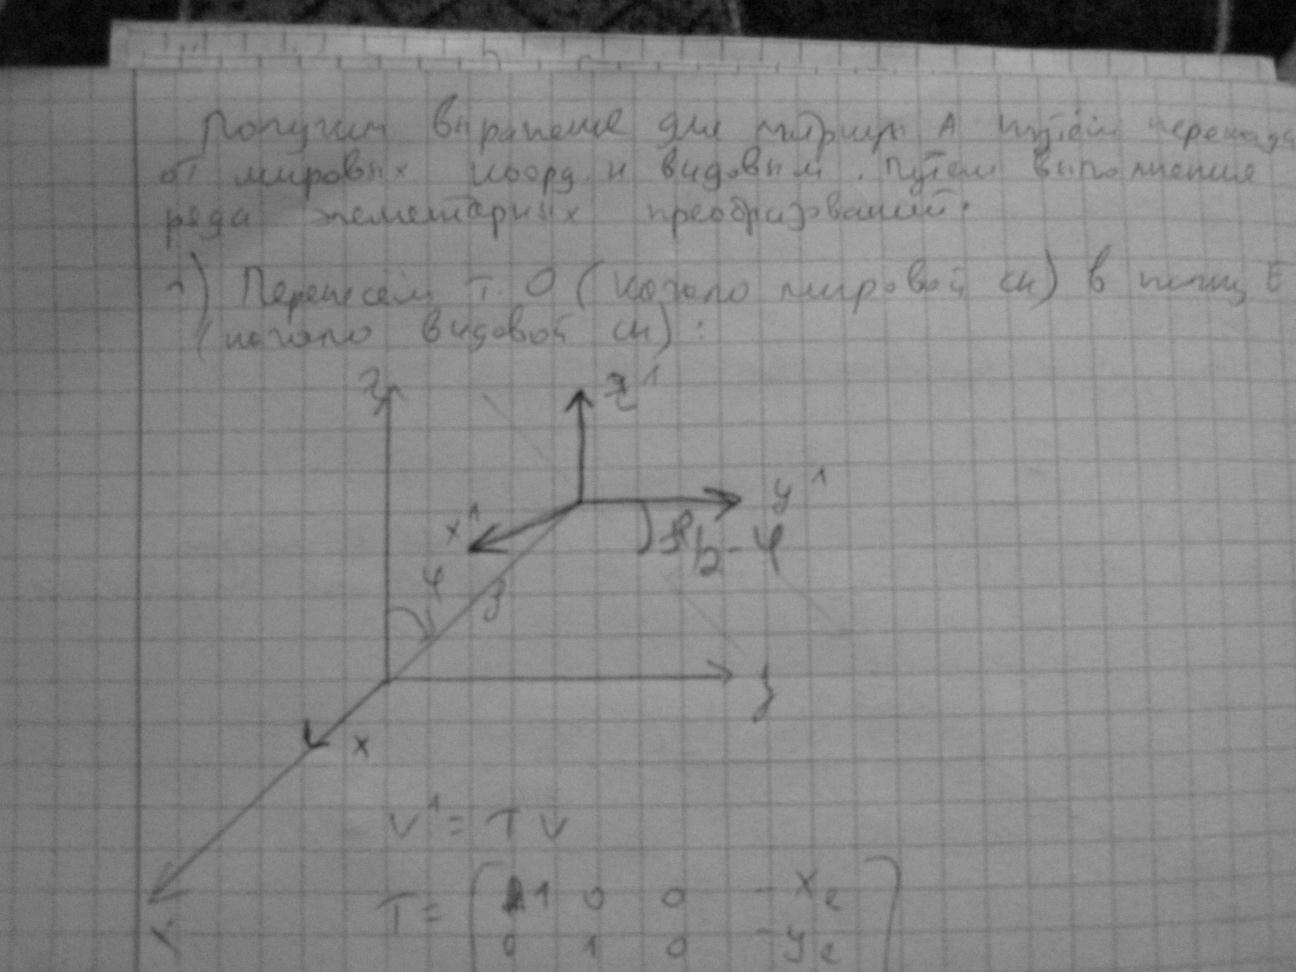 Получим выражение для матрицы A путём перехода
от мировых коорд. к видовым. Путём выполнения
ряда элементарных преобразований.
1) Перенесём т. O (начало мировой ск) в точку E
(начало видовой ск):
z
z¹
y¹
x¹
π/2 - φ
φ
ρ
y
x
V¹ = T V
T = ( 1 0 0 -xₑ )
0 1 0 -yₑ